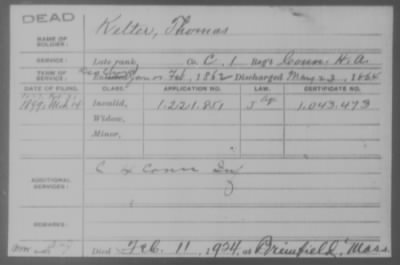 DEAD
NAME OF SOLDIER: Kelter, Thomas
SERVICE: Late rank, Co. C, 1 Reg't Conn H.A.
TERM OF SERVICE: Feb, 1862 Discharged May 23, 1864
DATE OF FILING. CLASS. APPLICATION NO. LAW. CERTIFICATE NO.
1899, Mch 14 Invalid, 1.221.851 1.043.473
Widow,
Minor,
ADDITIONAL SERVICES: C 4 Conn Inf
REMARKS:
Died Feb. 11, 1924, at Brimfield, Mass